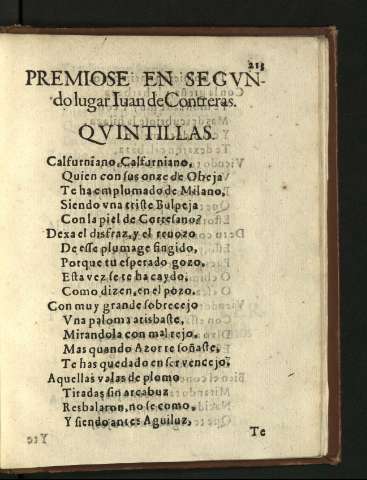 213
PREMIOSE EN SEGVN-
do lugar Iuan de Contreras.
QVINTILLAS.
Calfurniano, Calfurniano,
Quien con sus onze de Obeja
Te ha emplumado de Milano,
Siendo vna triste Bulpeja
Con la piel de Cortesano?
Dexa el disfraz, y el reuozo
De esse plumage fingido,
Porque tu esperado gozo,
Esta vez se te ha caydo,
Como dizen, en el pozo.
Con muy grande sobrecejo
Vna paloma atisbaste,
Mirandola con mal rejo,
Mas quando Azor te soñaste,
Te has quedado en ser vencejo.
Aquellas valas de plomo
Tiradas sin arcabuz
Resbalaron, no se como,
Y siendo antes Aguiluz,
Te